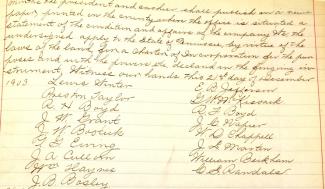 the president and cashier shall publish in a news
paper printed in the county where the office is situated a
statement of the condition and affairs of the company We the
undersigned apply to the State of Tennessee, by virtue of the
laws of the land for a Charter of Incorporation for the pur
poses and with the powers &c declared in the foregoing in
strument, Witness our hands this 2 day of December
1903 Lewis Winter
Preston Taylor
R H Boyd
J. W. Grant
J W Bostick
T G Ewing
J A Cullom
Wm Haynes
J. B. Bosley
E B Jefferson
H Boyd
J C Napier
W D Chappell
J. L Martin
William Beckham
C S Randals